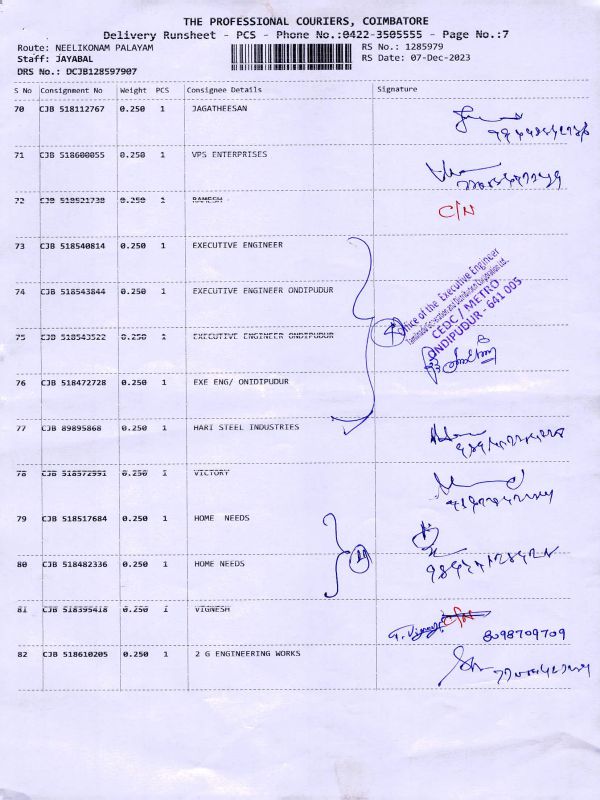 THE PROFESSIONAL COURIERS, COIMBATORE
Delivery Runsheet - PCS - Phone No.:0422-3505555 - Page No.:7
Route: NEELIKONAM PALAYAM RS No.: 1285979
Staff: JAYABAL RS Date: 07-Dec-2023
DRS No.: DCJB128597907
S No Consignment No Weight PCS Consignee Details Signature
70 CJB 518112767 0.250 1 JAGATHEESAN
71 CJB 518600055 0.250 1 VPS ENTERPRISES
72 CJB 518521738 0.250 1 RAMESH C/N
73 CJB 518540814 0.250 1 EXECUTIVE ENGINEER
74 CJB 518543844 0.250 1 EXECUTIVE ENGINEER ONDIPUDUR
Office of the Executive Engineer
Tamilnadu Generation and Distribution Corporation Ltd.
CEDC / METRO
ONDIPUDUR - 641 005
75 CJB 518543522 0.250 1 EXECUTIVE ENGINEER ONDIPUDUR
4
76 CJB 518472728 0.250 1 EXE ENG/ ONIDIPUDUR
77 CJB 89895868 0.250 1 HARI STEEL INDUSTRIES
78 CJB 518572551 0.250 1 VICTORY
79 CJB 518517684 0.250 1 HOME NEEDS
80 CJB 518482336 0.250 1 HOME NEEDS
81 CJB 518395418 0.250 1 VIGNESH C/N
8098709709
82 CJB 518610205 0.250 1 2 G ENGINEERING WORKS